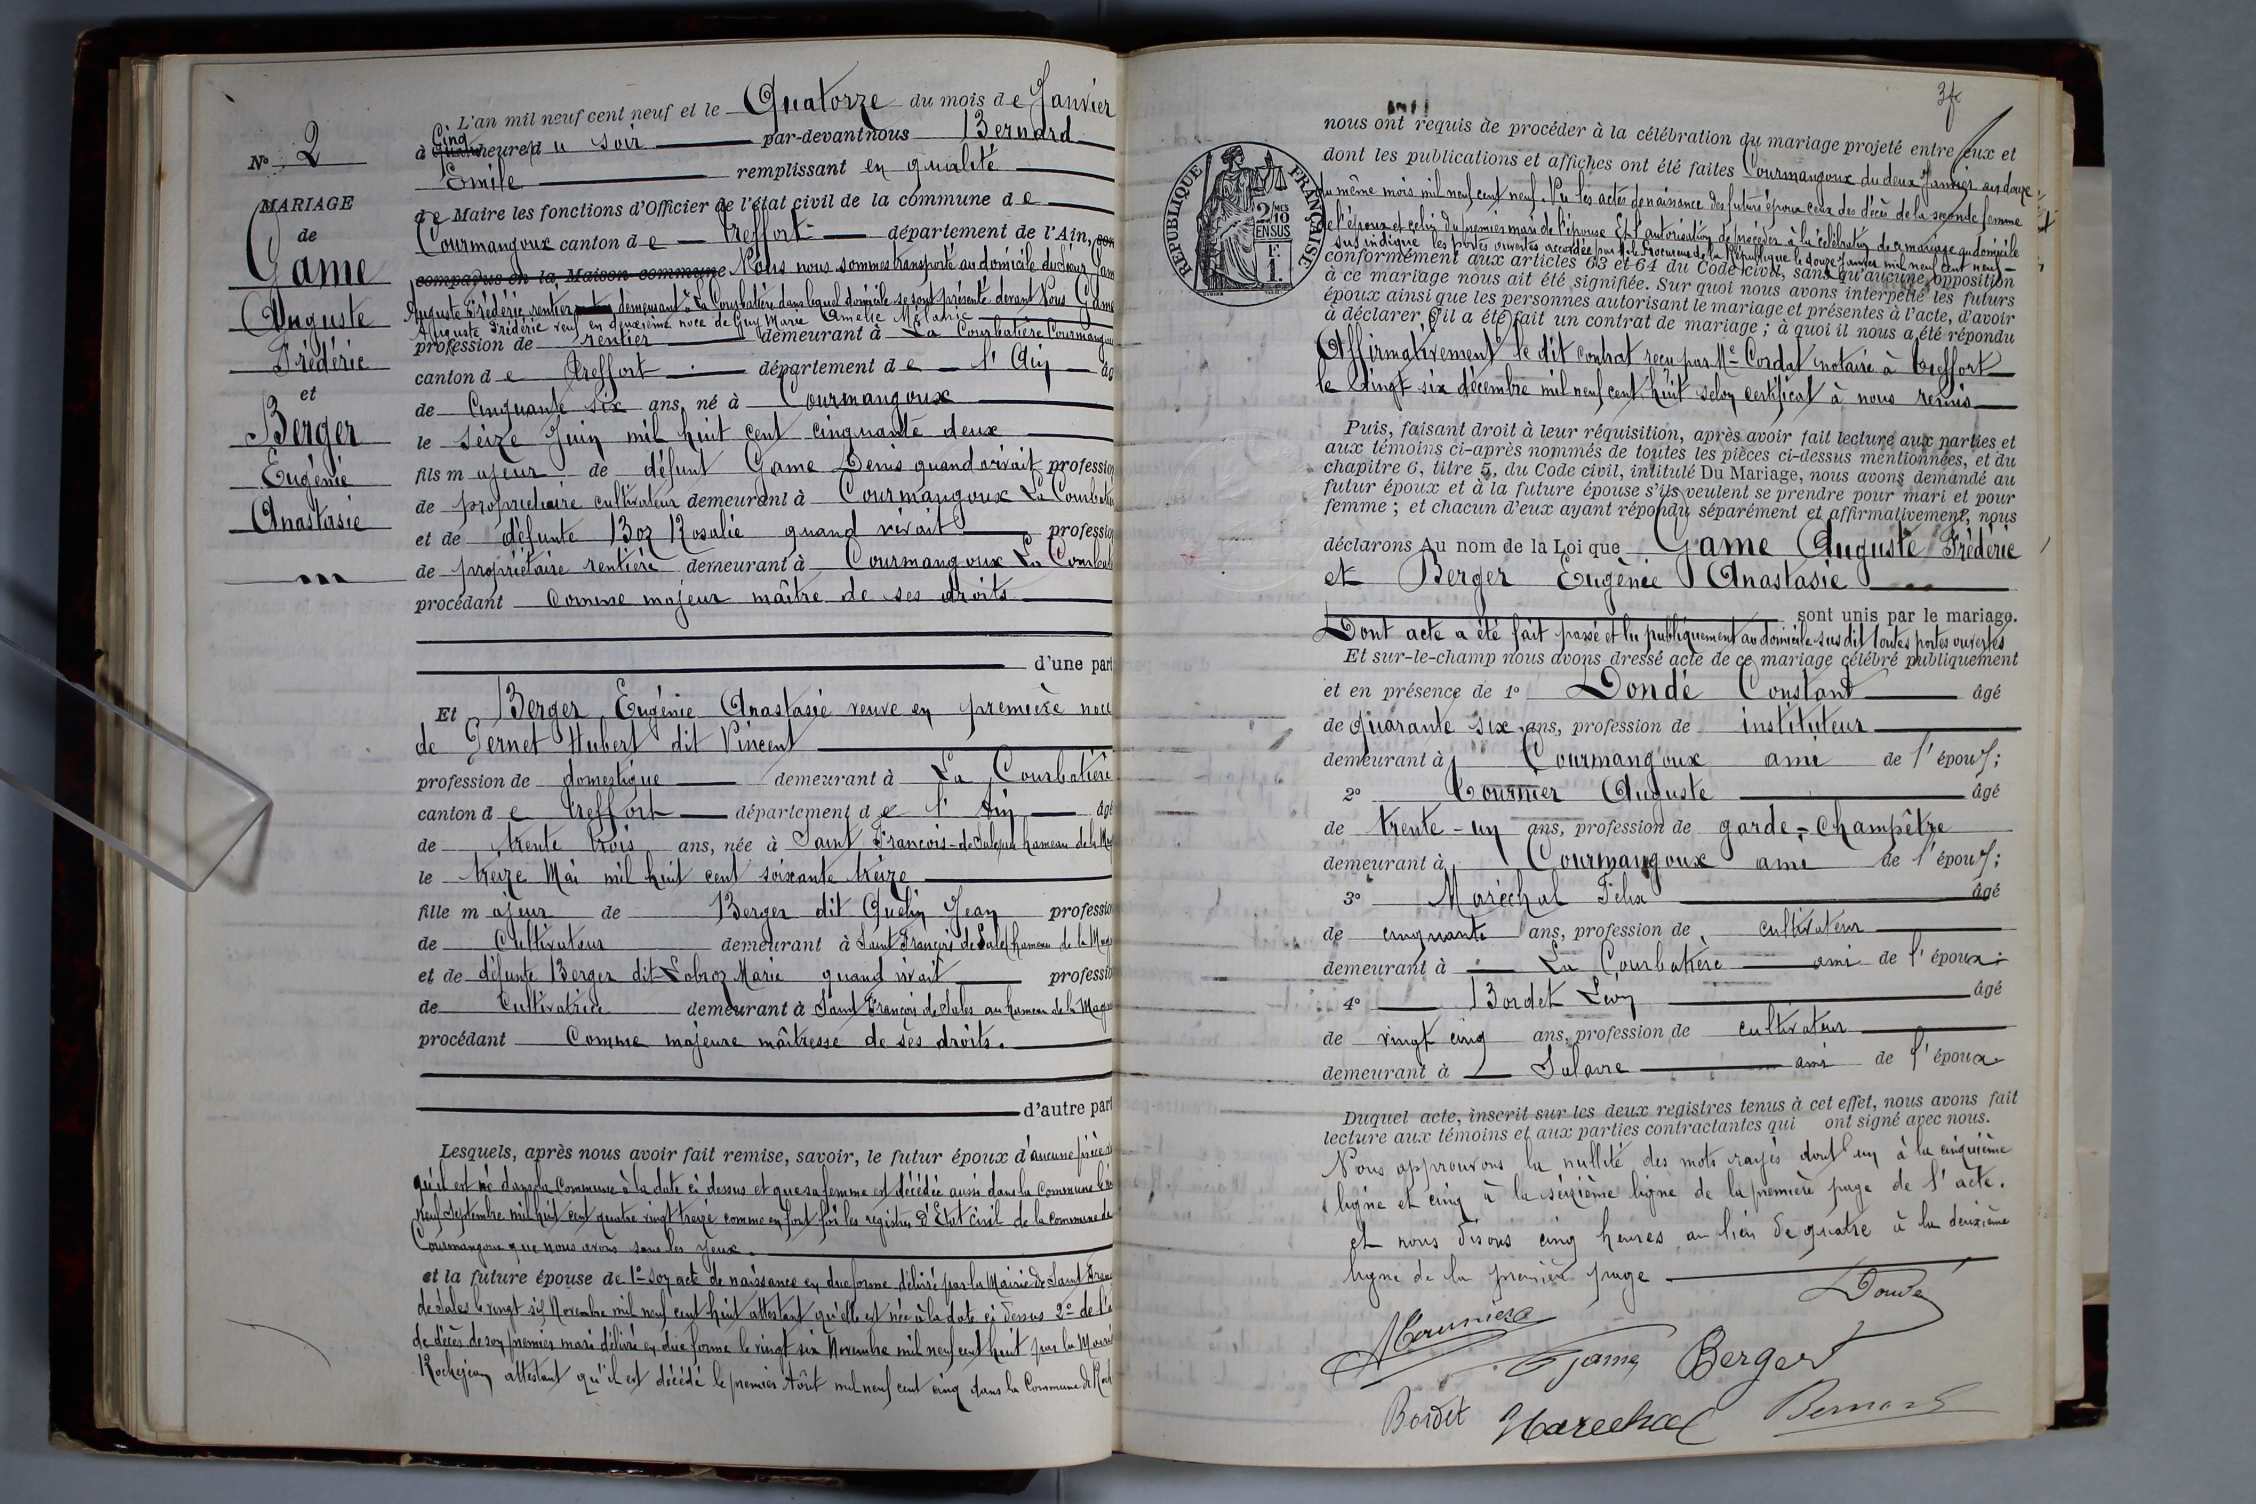 N° 2
MARIAGE
de
Game
Auguste
Frédéric
et
Berger
Eugénie
Anastasie
L'an mil neuf cent neuf et le Quatorze du mois de Janvier
à Cinq heure du soir par-devant nous Bernard
Emile remplissant en qualité
de Maire les fonctions d'Officier de l'état civil de la commune de
Courmangoux canton de Treffort département de l'Ain,
comparus en la Maison commune Nous nous sommes transporté au domicile du sieur Game
Auguste Frédéric rentier demeurant à La Courbatière dans lequel domicile se sont présenté devant Nous Game
Auguste Frédéric veuf en deuxième noce de Guy Marie Amélie Mélanie
profession de rentier demeurant à La Courbatière Courmangoux
canton de Treffort département de l'Ain âg
de Cinquante six ans, né à Courmangoux
le seize Juin mil huit cent cinquante deux
fils majeur de défunt Game Denis quand vivait profession
de propriétaire cultivateur demeurant à Courmangoux La Courbati
et de défunte Boz Rosalie quand vivait profession
de propriétaire rentière demeurant à Courmangoux La Courbati
procédant Comme majeur maître de ses droits
d'une part
Et Berger Eugénie Anastasie veuve en première noce
de Pernet Hubert dit Vincent
profession de domestique demeurant à La Courbatière
canton de Treffort département de l'Ain âgé
de trente trois ans, née à Saint François-de-Sales au hameau de la Mag
le treize Mai mil huit cent soixante treize
fille majeur de Berger dit Quelin Jean profession
de Cultivateur demeurant à Saint François de Sales hameau de la Mag
et de défunte Berger dit Lobroz Marie quand vivait profession
de Cultivatrice demeurant à Saint François de Sales au hameau de la Mag
procédant Comme majeure maîtresse de ses droits.
d'autre part
Lesquels, après nous avoir fait remise, savoir, le futur époux d'aucune pièce
qu'il est né dans la Commune à la date ci dessus et que sa femme est décédée aussi dans la Commune le
neuf Septembre mil huit cent quatre vingt treize comme en font foi les registres d'Etat Civil de la commune de
Courmangoux que nous avons sous les yeux.
et la future épouse de 1° son acte de naissance en due forme délivré par la Mairie de Saint Fran
de Sales le vingt six Novembre mil neuf cent huit attestant qu'elle est née à la date ci dessus 2° de l'a
de décès de son premier mari délivré en due forme le vingt six Novembre mil neuf cent huit par la Mairie
Rochejean attestant qu'il est décédé le premier Août mil neuf cent cinq dans la Commune de Roch
nous ont requis de procéder à la célébration du mariage projeté entre eux et
dont les publications et affiches ont été faites Courmangoux du deux Janvier au douze
du même mois mil neuf cent neuf. Vu les actes de naissance des futurs époux ceux des décès de la seconde femme
de l'époux et celui du premier mari de l'épouse Et l'autorisation de procéder à la célébration de ce mariage au domicile
sus indiqué les portes ouvertes accordée par le Procureur de la République le douze Janvier mil neuf cent neuf
conformément aux articles 63 et 64 du Code civil, sans qu'aucune opposition
à ce mariage nous ait été signifiée. Sur quoi nous avons interpellé les futurs
époux ainsi que les personnes autorisant le mariage et présentes à l'acte, d'avoir
à déclarer s'il a été fait un contrat de mariage ; à quoi il nous a été répondu
Affirmativement le dit contrat reçu par Me Cordat notaire à Treffort
le vingt six décembre mil neuf cent huit selon certificat à nous remis
Puis, faisant droit à leur réquisition, après avoir fait lecture aux parties et
aux témoins ci-après nommés de toutes les pièces ci-dessus mentionnées, et du
chapitre 6, titre 5, du Code civil, intitulé Du Mariage, nous avons demandé au
futur époux et à la future épouse s'ils veulent se prendre pour mari et pour
femme ; et chacun d'eux ayant répondu séparément et affirmativement, nous
déclarons Au nom de la Loi que Game Auguste Frédéric
et Berger Eugènie Anastasie
sont unis par le mariage.
Dont acte a été fait passé et lu publiquement au domicile sus dit toutes portes ouvertes
Et sur-le-champ nous avons dressé acte de ce mariage célébré publiquement
et en présence de 1° Dondé Constant âgé
de quarante six ans, profession de instituteur
demeurant à Courmangoux ami de l'époux;
2° Tournier Auguste âgé
de trente-un ans, profession de garde-Champêtre
demeurant à Courmangoux ami de l'époux;
3° Maréchal Félix âgé
de cinquante ans, profession de cultivateur
demeurant à La Courbatière ami de l'époux
4° Bordet Lévy âgé
de vingt cinq ans, profession de cultivateur
demeurant à Salavre ami de l'époux
Duquel acte, inscrit sur les deux registres tenus à cet effet, nous avons fait
lecture aux témoins et aux parties contractantes qui ont signé avec nous.
Nous approuvons la nullité des mots rayés dont un à la cinquième
ligne et cinq à la seizième ligne de la première page de l'acte.
et nous disons cinq heures au lieu de quatre à la deuxième
ligne de la première page
Dondé
Tournier
Game Berger
Bordet Marechal Bernard
RÉPUBLIQUE FRANÇAISE
2/10 MES
EN SUS
1 F.